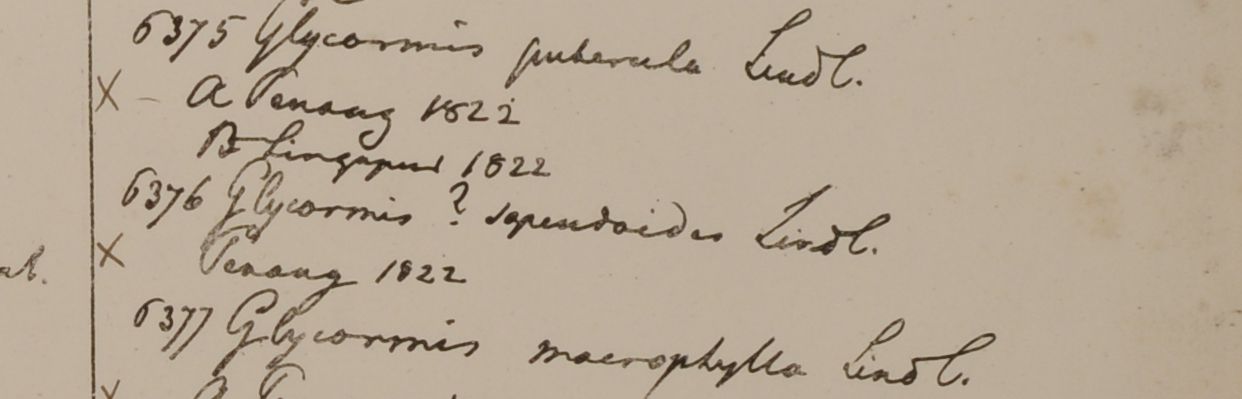 6375 Glycosmis puberula Lindl.
X – A Penang 1822
B Singapur 1822
6376 Glycosmis ? sapindoides Lindl.
X Penang 1822
6377 Glycosmis macrophylla Lindl.
X A